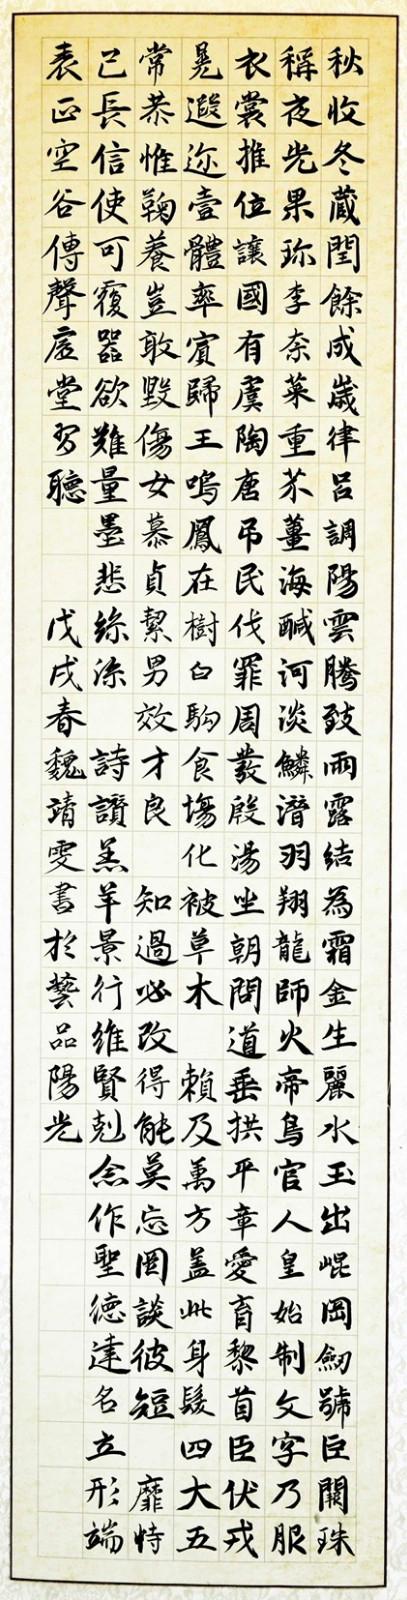 秋收冬藏閏餘成歲律呂調陽雲騰致雨露結為霜金生麗水玉出崐岡劒號巨闕珠
稱夜光果珍李柰菜重芥薑海鹹河淡鱗潛羽翔龍師火帝鳥官人皇始制文字乃服
衣裳推位讓國有虞陶唐吊民伐罪周發殷湯坐朝問道垂拱平章愛育黎首臣伏戎
羌遐迩壹體率賓歸王鳴鳳在樹白駒食場化被草木 賴及萬方蓋此身髮四大五
常恭惟鞠養豈敢毀傷女慕貞絜男效才良 知過必改得能莫忘罔談彼短 靡恃
己長信使可覆器欲難量墨悲絲染 詩讚羔羊景行維賢剋念作聖德建名立形端
表正空谷傳聲虛堂習聽 戊戌春魏靖雯書於藝品陽光